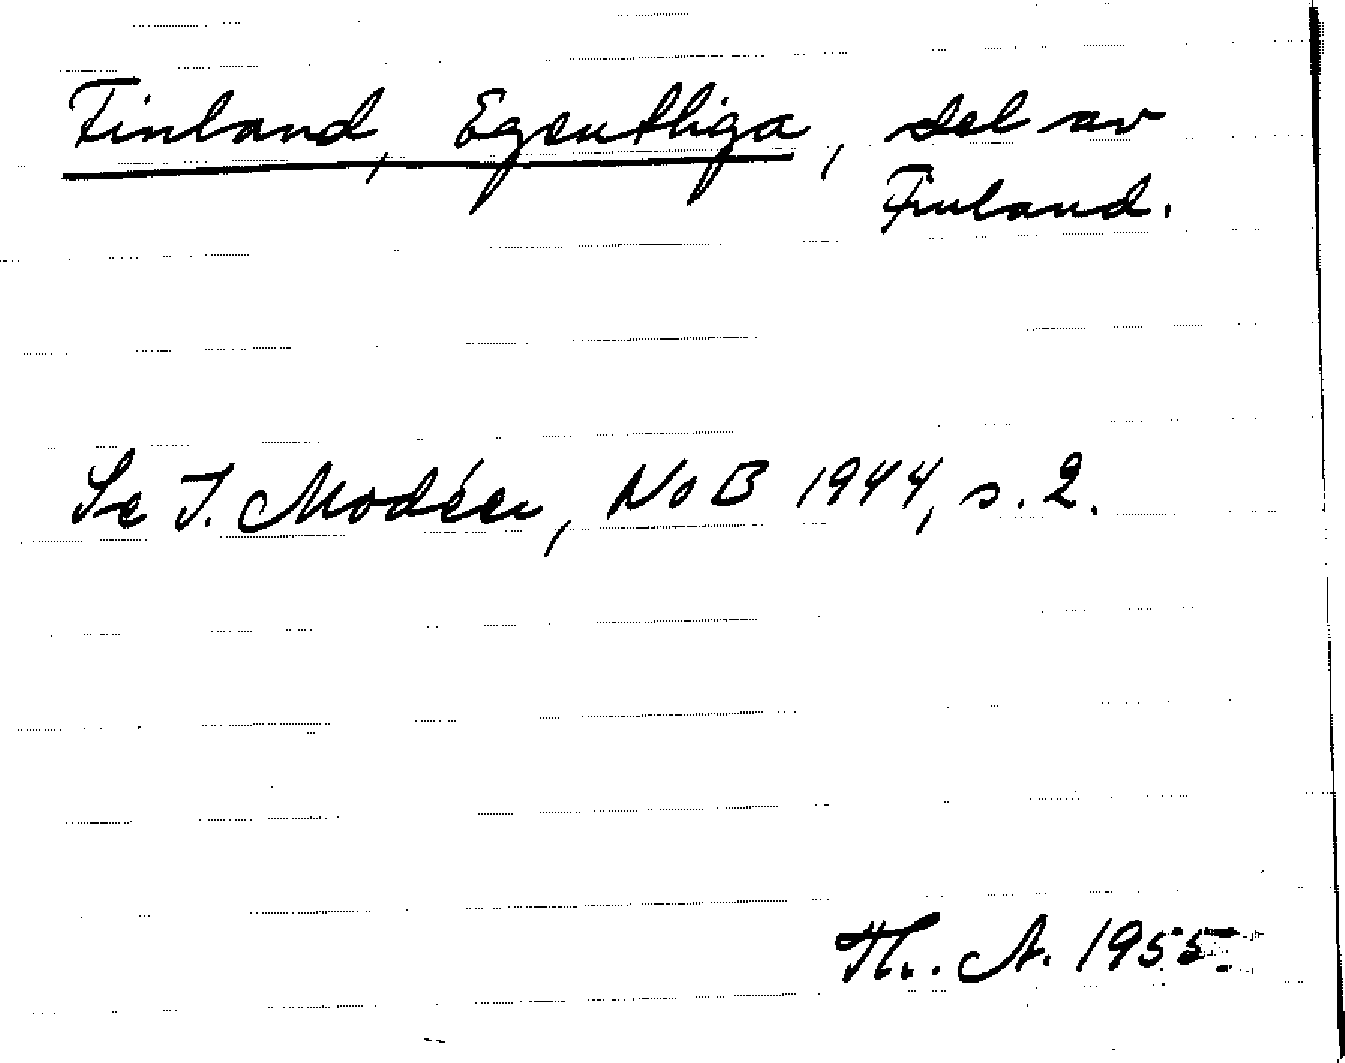 Finland, Egentliga, del av
Finland.
Se I. Modéer, NoB 1944, s. 2.
Th. A. 1955.